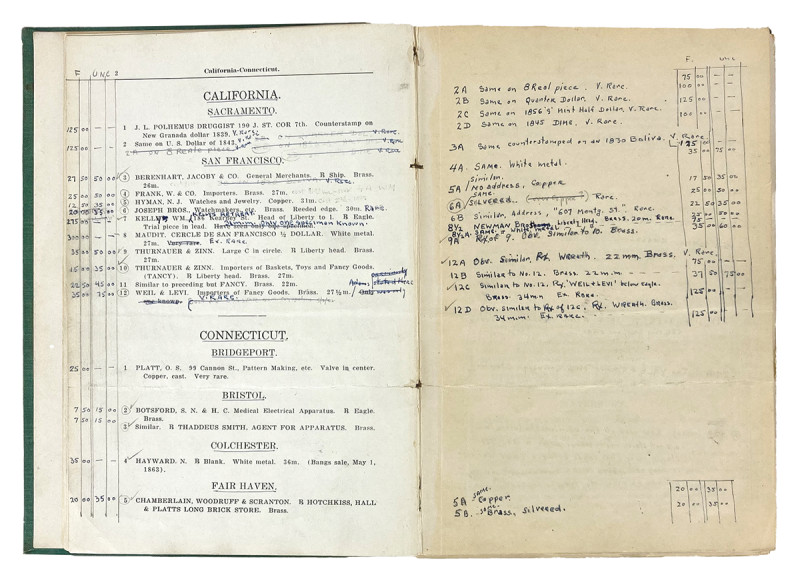 F UNC 2
California-Connecticut.
CALIFORNIA.
SACRAMENTO.
125 00 — — 1 J. L. POLHEMUS DRUGGIST 190 J. ST. COR 7th. Counterstamp on
New Granada dollar 1839. V. Rare
175 00 — — 2 Same on U. S. Dollar of 1842. V. R
2A ON 8 REALE PIECE V. Rare
SAN FRANCISCO.
27 50 50 00 3 BERENHART, JACOBY & CO. General Merchants. R Ship. Brass.
26m. V. Rare.
4 FRANK, W. & CO. Importers. Brass. 27m.
5 HYMAN, N.J. Watches and Jewelry. Copper. 21m.
20 00 35 00 6 JOSEPH BROS. Watchmakers, etc. Brass. Reeded edge. 30m. RARE.
7 KELLEY WM. Kearney St. Head of Liberty to l. R Eagle.
Trial piece in lead. Only one specimen known.
300 00 — — 8 MAUDIT. CERCLE DE SAN FRANCISCO ½ DOLLAR. White metal.
27m. Very rare. Ex. Rare
9 THURNAUER & ZINN. Large C in circle. R Liberty head. Brass.
27m.
45 00 35 00 10 THURNAUER & ZINN. Importers of Baskets, Toys and Fancy Goods.
(TANCY). R Liberty head. Brass. 27m.
22 50 45 00 11 Similar to preceding but FANCY. Brass. 22m.
35 00 75 00 12 WEIL & LEVI. Importers of Fancy Goods. Brass. 27½m.
V. RARE.
CONNECTICUT.
BRIDGEPORT.
25 00 — — 1 PLATT, O. S. 99 Cannon St., Pattern Making, etc. Valve in center.
Copper, cast. Very rare.
BRISTOL.
7 50 15 00 2 BOTSFORD, S. N. & H. C. Medical Electrical Apparatus. R Eagle.
7 50 15 00 Brass.
3 Similar. R THADDEUS SMITH. AGENT FOR APPARATUS. Brass.
COLCHESTER.
35 00 — — 4 HAYWARD. N. R Blank. White metal. 36m. (Bangs sale, May 1,
1863).
FAIR HAVEN.
20 00 35 00 5 CHAMBERLAIN, WOODRUFF & SCRANTON. R HOTCHKISS, HALL
& PLATTS LONG BRICK STORE. Brass.
F. UNC
2A Same on 8 Real piece. V. Rare. 75 00
2B Same on Quarter Dollar. V. Rare. 100 00
2C Same on 1856 'o' Mint Half Dollar. V. Rare. 125 00
2D Same on 1845 DIME. V. Rare. 100 00
3A Same counterstamped on an 1830 Bolivia. V. Rare 125 00
35 00 75 00
4A SAME. White metal.
Similar. 17 50 35 00
5A No address, Copper 25 00 50 00
SAME.
6A SILVERED. Rare. 22 50 50 00
6B Similar, Address, "607 Montg. St". Rare.
8½ NEWMAN Liberty Head. Brass. 20m. Rare.
8½A. SAME. White metal 35 00 60 00
9A Rx of 9. Obv. Similar to 10. Brass.
12A Obv. Similar, Rx. Wreath. 22mm. Brass. V. Rare. 75 00
12B Similar to No. 12. Brass. 22 m.m. 37 50 75 00
12C Similar to No. 12, Rx. 'WEIL & LEVI' below eagle.
Brass. 34mm Ex. Rare. 125 00
12D Obv. Similar to Rx of 12C, Rx. WREATH. Brass.
34 m.m. Ex. Rare. 125 00
same.
5A Copper 20 00 35 00
same
5B. Brass, Silvered. 20 00 35 00